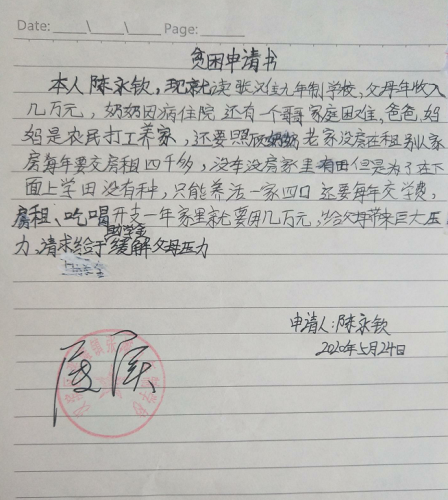 Date: \ \ Page:
贫困申请书
本人陈永钦,现就读张汉佳九年制学校,父母年收入
几万元,奶奶因病住院还有一个哥家庭困难,爸爸,妈
妈是农民打工养家,还要照顾奶奶老家没房在租别人家
房每年要交房租四千多,没车没房家里有田但是为了在下
面上学田没有种,只能养活一家四口还要每年交学费,
房租、吃喝开支一年家里就要用几万元,给父母带来巨大压
力,请求给于助学金缓解父母压力
申请人:陈永钦
2020年5月24日